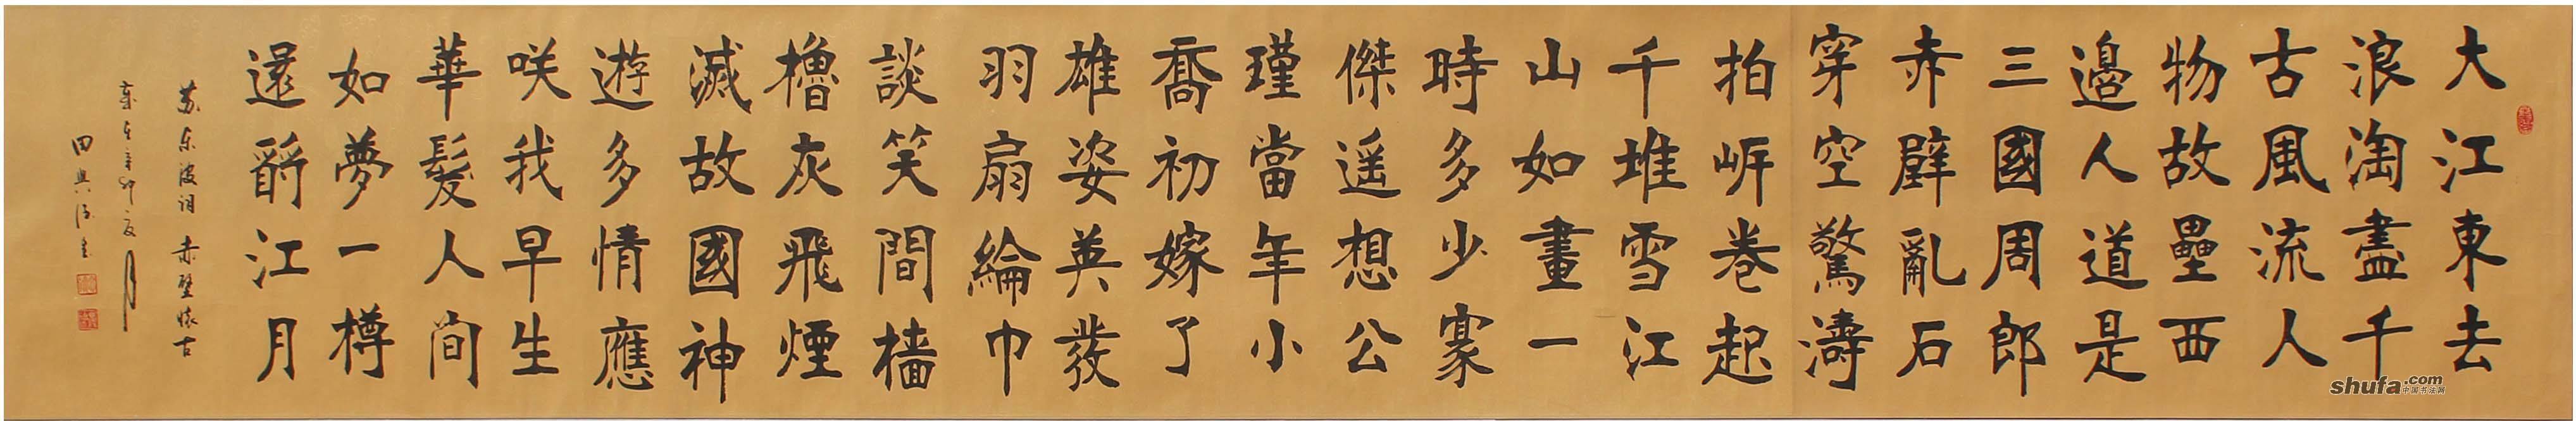 大江東去
浪淘盡千
古風流人
物故壘西
邉人道是
三國周郎
赤壁亂石
穿空驚濤
拍岍卷起
千堆雪江
山如畫一
時多少豪
傑遥想公
瑾當年小
喬初嫁了
雄姿英發
羽扇綸巾
談笑間檣
櫓灰飛煙
滅故國神
遊多情應
咲我早生
華髮人间
如夢一樽
還酹江月
苏东坡词 赤壁怀古
岁在辛卯之夏月
田兴
shufa.com
中国书法网